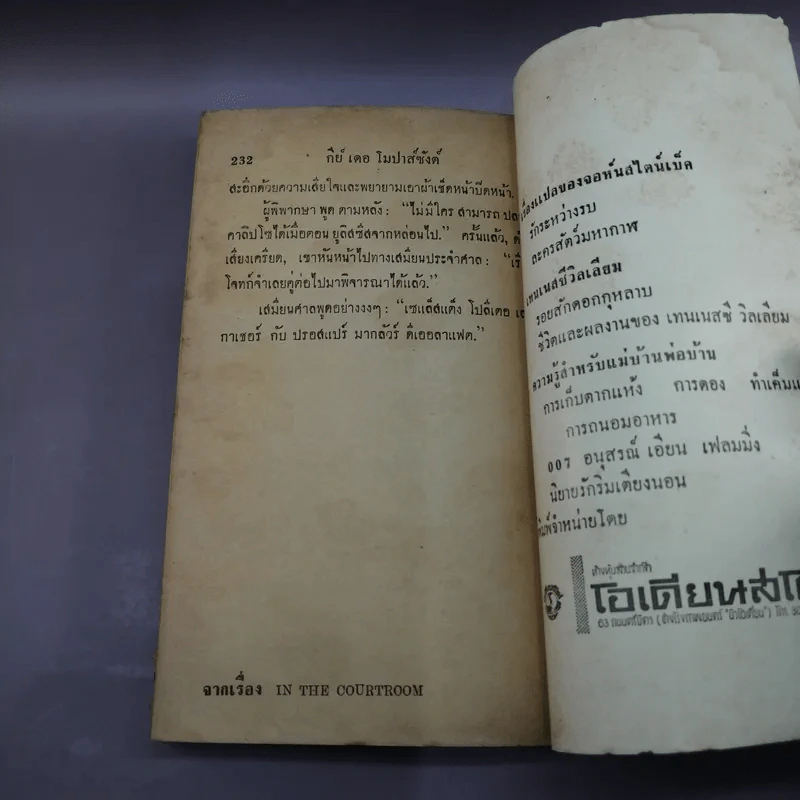 232 กีย์ เดอ โมปาส์ซังต์
สะอึกด้วยความเสียใจและพยายามเอาผ้าเช็ดหน้าปิดหน้า.
ผู้พิพากษา พูด ตามหลัง: “ไม่มีใคร สามารถ
คาลิปโซได้เมื่อตอน ยูลิสซีสจากหล่อนไป.” ครั้นแล้ว,
เสียงเครียด, เขาหันหน้าไปทางเสมียนประจำศาล:
โจทก์จำเลยคู่ต่อไปมาพิจารณาได้แล้ว.”
เสมียนศาลพูดอย่างงงๆ: “เซแล็สแต็ง โปลีเตอ
กาเชอร์ กับ ปรอสแปร์ มากลัวร์ ดีเออลาเฟต.”
จากเรื่อง IN THE COURTROOM
เรื่องแปลของจอห์นสไตน์เบ็ค
รักระหว่างรบ
ละครสัตว์มหากาฬ
เทนเนสซีวิลเลียม
รอยสักดอกกุหลาบ
ชีวิตและผลงานของ เทนเนสซี วิลเลียม
ความรู้สำหรับแม่บ้านพ่อบ้าน
การเก็บตากแห้ง การดอง ทำเค็ม
การถนอมอาหาร
007 อนุสรณ์ เอียน เฟลมมิ่ง
นิยายรักริมเตียงนอน
พิมพ์จำหน่ายโดย
ห้างหุ้นส่วนจำกัด
โอเดียนสโ